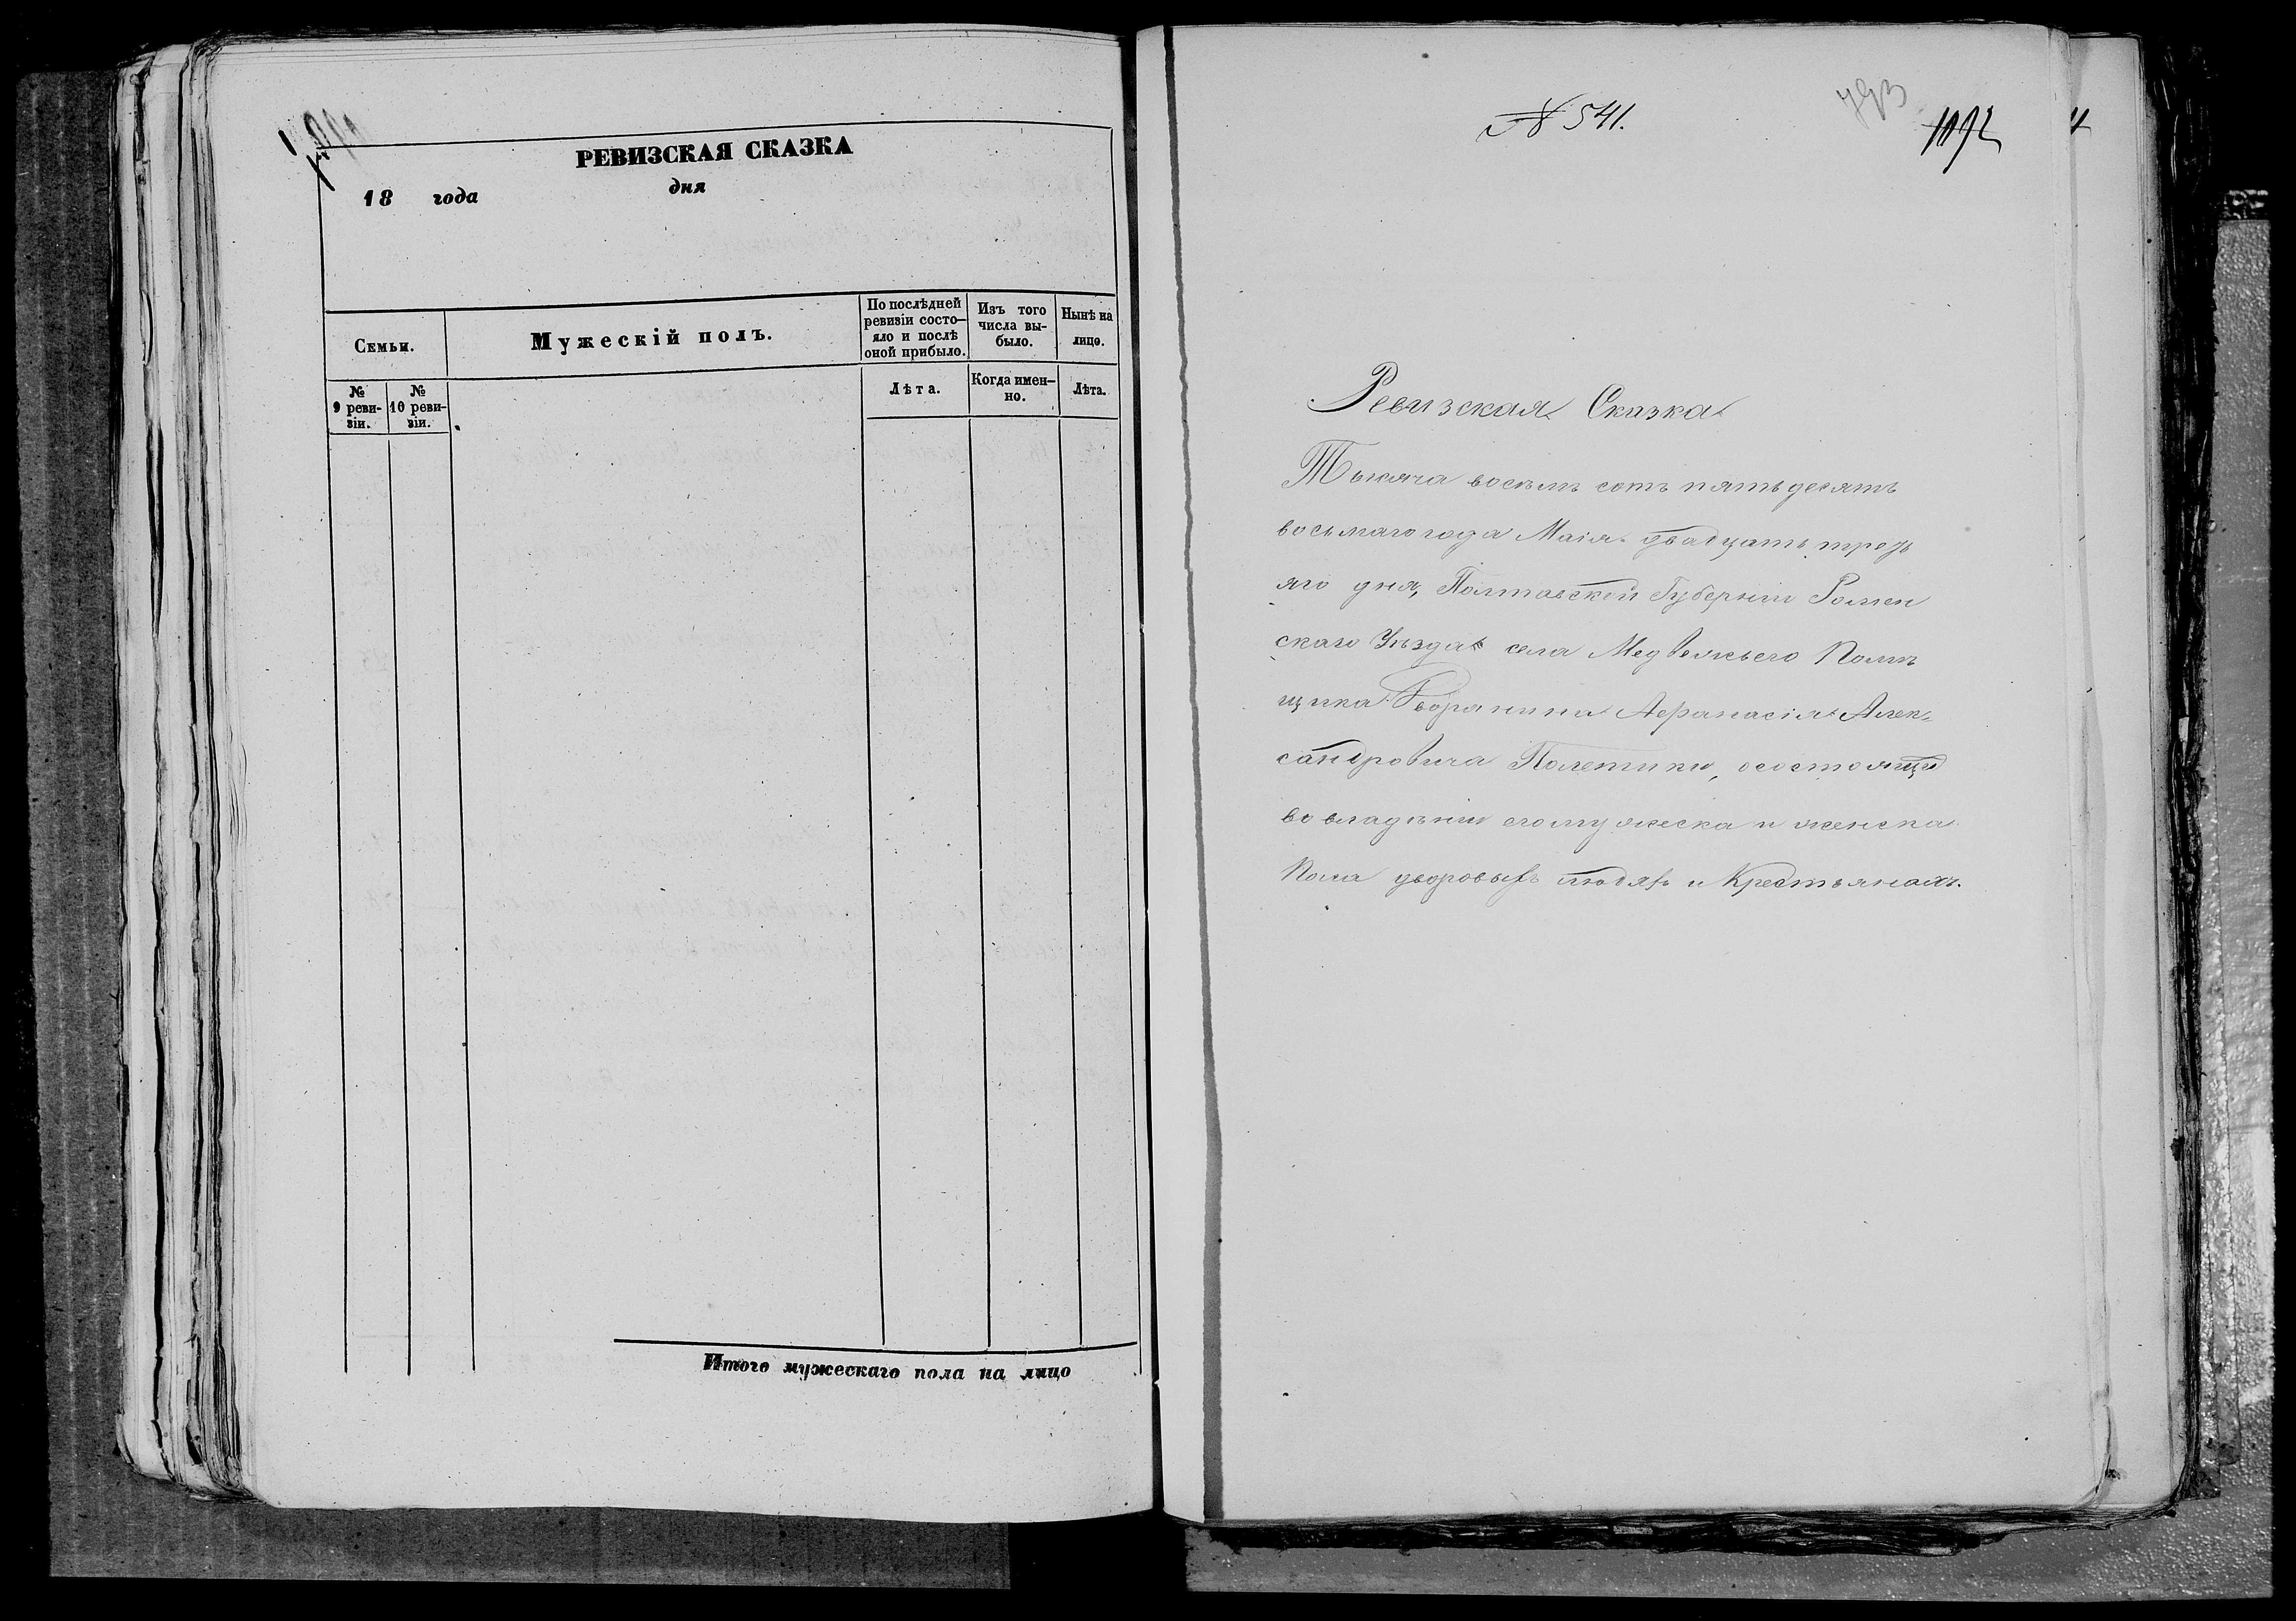 РЕВИЗСКАЯ СКАЗКА
18 года дня
Семьи.
Мужескій полъ.
По послѣдней ревизіи состо-
яло и послѣ
оной прибыло.
Изъ того
числа вы-
было.
Нынѣ на
лицо.
№
9 реви-
зіи.
№
10 реви-
зіи.
Лѣта.
Когда имен-
но.
Лѣта.
Итого мужескаго пола на лицо
№ 541.
793
1092
Ревизская Сказка
Тысяча восемь сотъ пятьдесятъ
восьмаго года Маія двадцать треть
яго дня, Полтавской Губерніи Ромен
скаго Уѣзда села Медвежьего Помѣ
щика Дворянина Афанасія Алек-
сандровича Полетики, о состоящи
во владѣніи его мужеска и женска
Пола дворовыхъ людяхъ и Крестьянахъ.